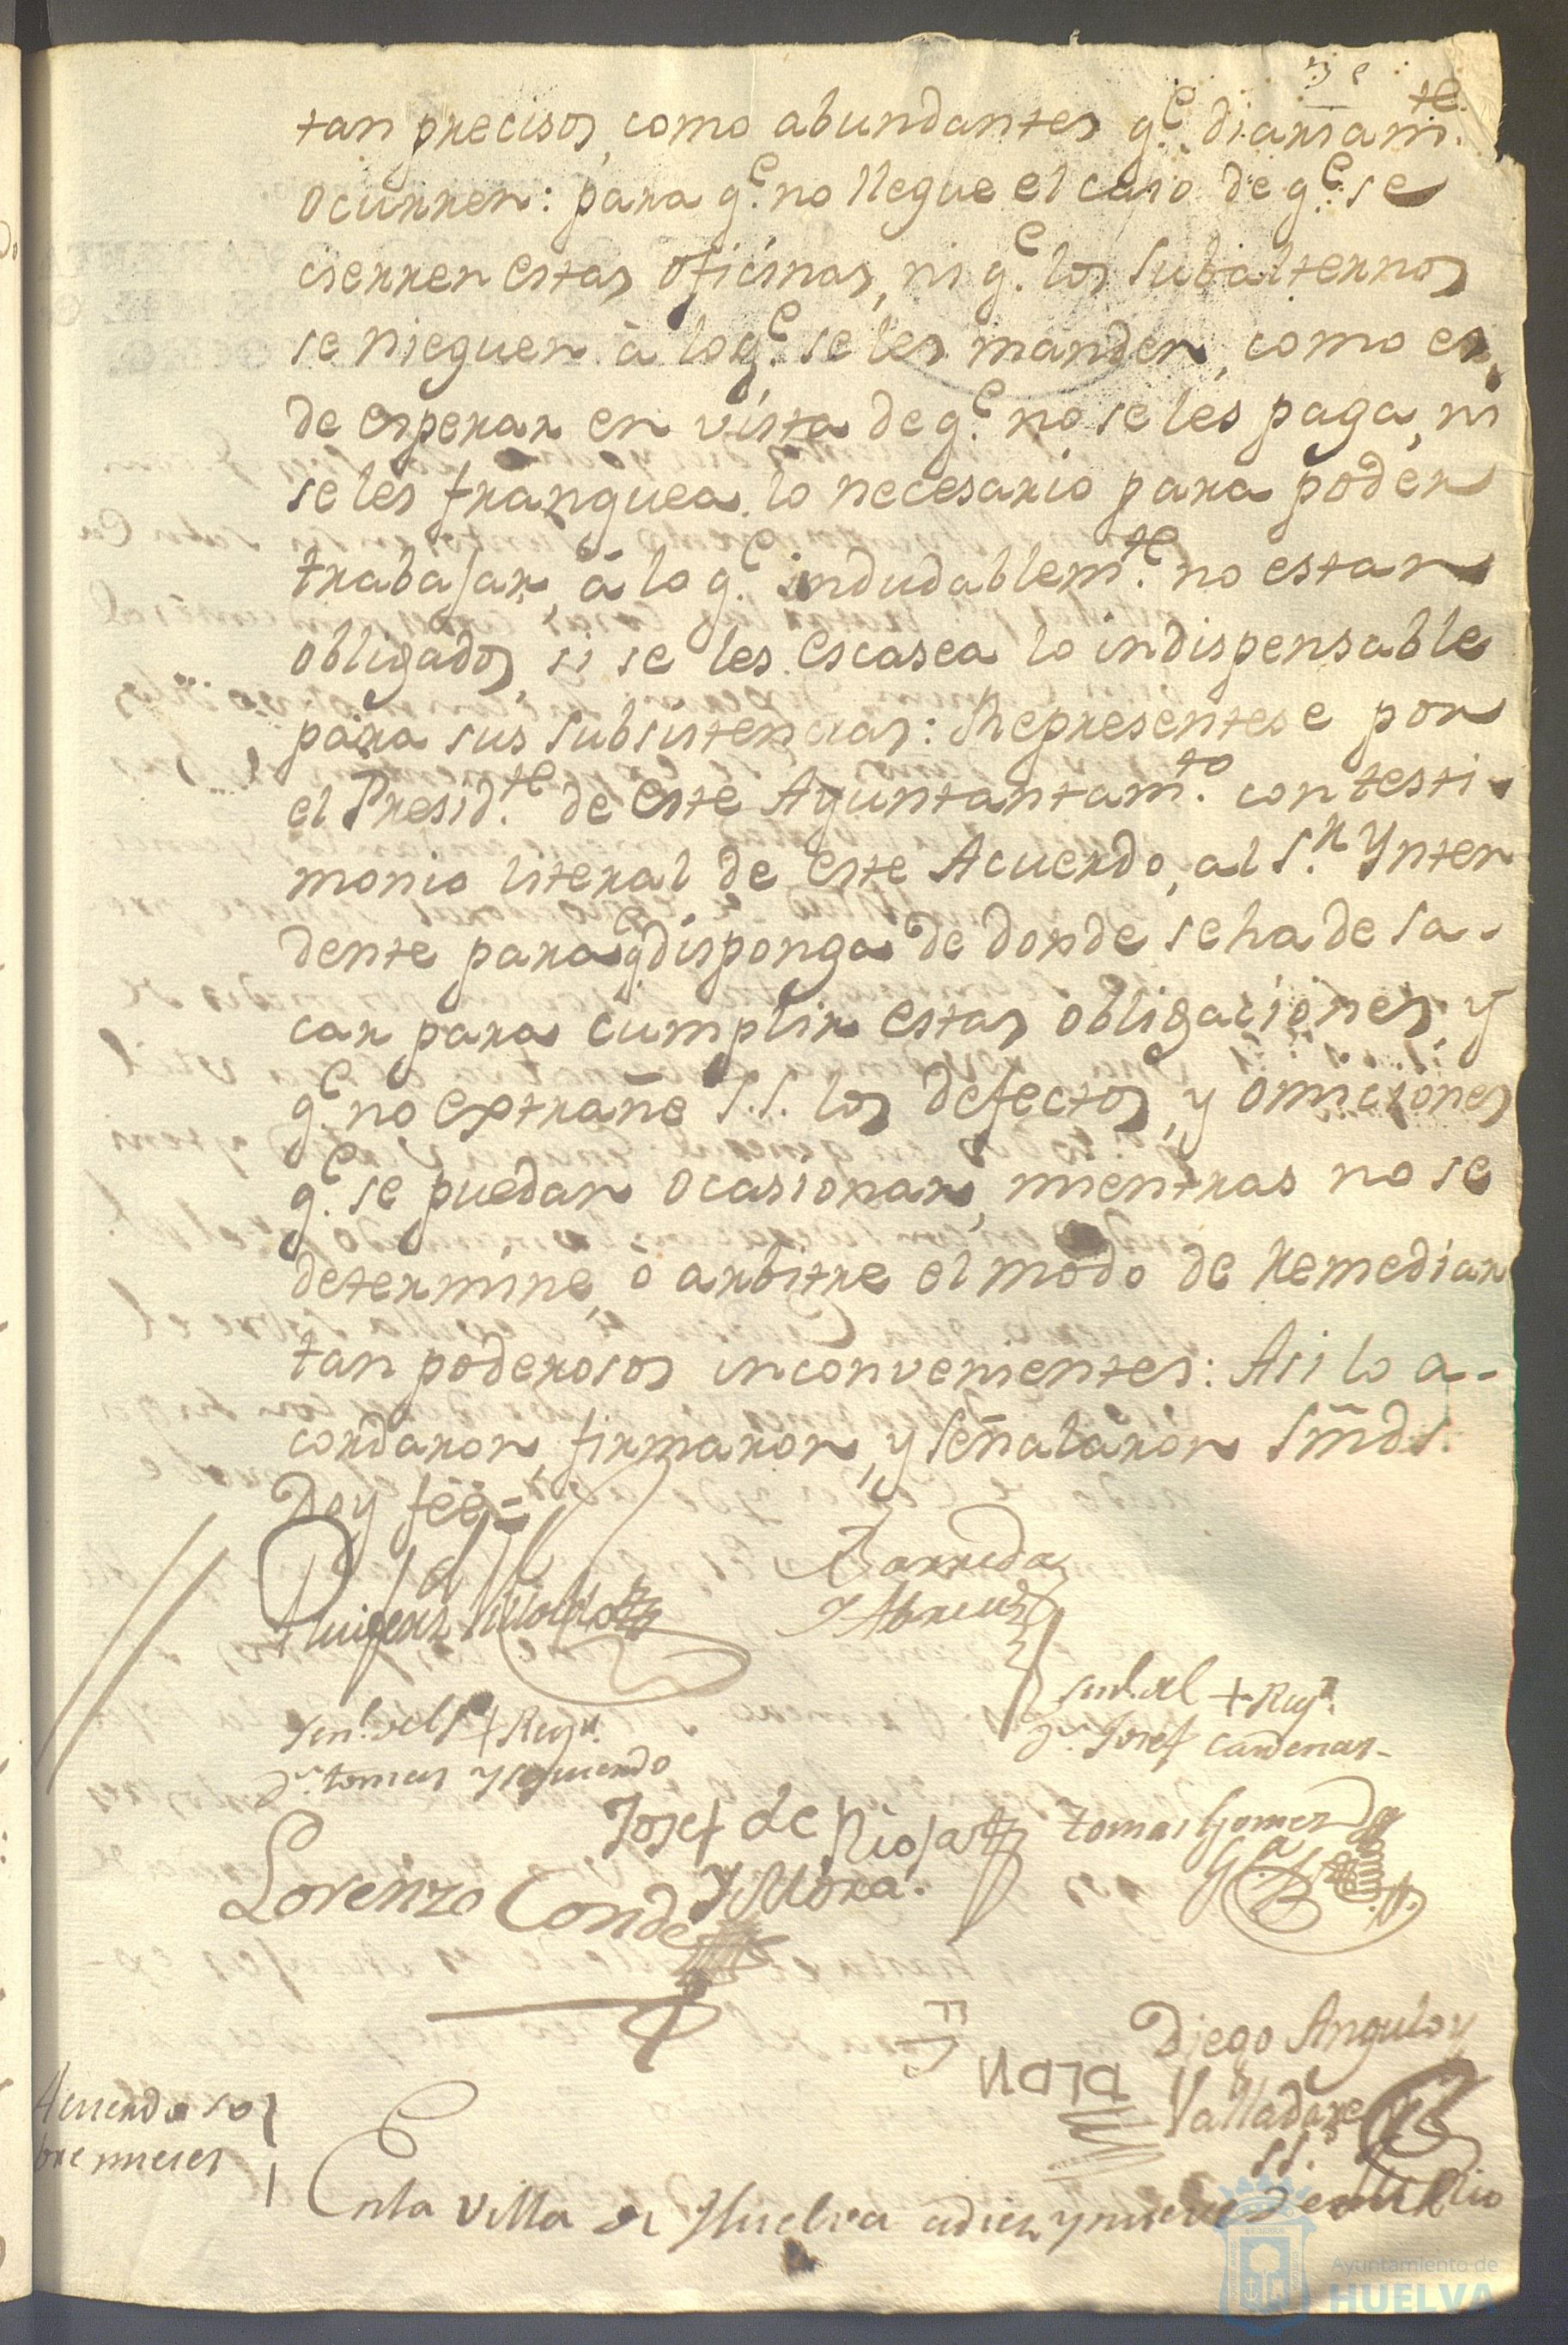 tan precisos, como abundantes q.e diariam.te
ocurren: para q.e no llegue el caso de q.e se
cierren estas oficinas, ni q.e los subalternos
se nieguen à lo q.e se les manden, como es
de esperar en vista de q.e no se les paga, ni
se les franquea lo necesario para poder
trabajar, à lo q.e indudablem.te no estan
obligados, si se les escasea lo indispensable
para sus subsistencias: Representese por
el Presid.te de este Ayuntantam.to con testi-
monio literal de este Acuerdo, al S.r Ynten
dente para q.e disponga de donde se ha de sa-
car para cumplir estas obligaciones, y
q.e no extrañe S.S. los defectos, y omiciones
q.e se puedan ocasionar, mientras no se
determine, o arbitre el modo de remediar
tan poderosos inconvenientes: Asi lo a-
cordaron, firmaron, y señalaron Smds.
Doy fee=
Barreda
Y Abreu
señ.l del S.r + Rex.r
d.n tomas ysquierdo
señ.l del + Rex.r
d.n Josef Cardenas-
Josef de Rioja
Y Mora.
Tomas Gomez
Lorenzo Conde
Diego Angulo y
Valladares
SS.
Acuerdo so
bre mieses
En la Villa de Huelva a diez y nueve de
Ayuntamiento de
HUELVA